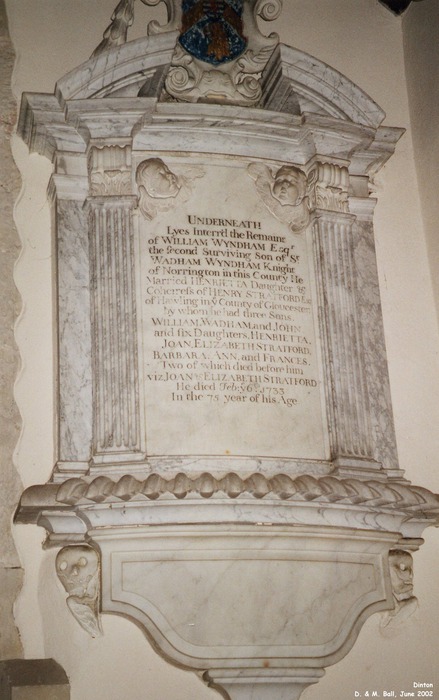 UNDERNEATH
Lyes Interr'd the Remains
of WILLIAM WYNDHAM Esqr.
the Second Surviving Son of Sr.
WADHAM WYNDHAM Knight
of Norrington in this County He
Married HENRIETTA Daughter &
Coheiress of HENRY STRATFORD Esq
of Hawling in ye County of Gloucester
by whom he had three Sons
WILLIAM, WADHAM, and JOHN
and six Daughters, HENRIETTA,
JOAN, ELIZABETH STRATFORD,
BARBARA, ANN, and FRANCES.
Two of which died before him
viz. JOAN & ELIZABETH STRATFORD
He died Feb: 1733
In the 75 year of his Age
Dinton
D. & M. Ball, June 2002